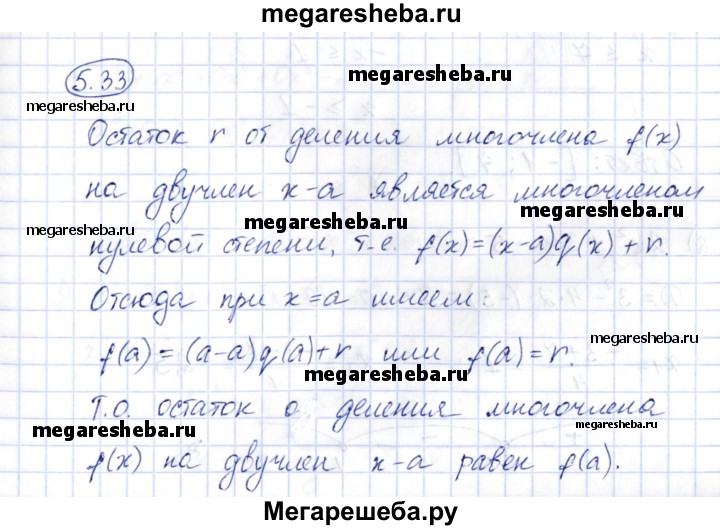 megaresheba.ru
5.33
megaresheba.ru
megaresheba.ru
Остаток r от деления многочлена f(x)
на двучлен x-a является многочленом
megaresheba.ru
megaresheba.ru
нулевой степени, т.е. f(x)=(x-a)q(x)+r.
Отсюда при x=a имеем:
megaresheba.ru
f(a)=(a-a)q(a)+r или f(a)=r.
megaresheba.ru
Т.о. остаток о деления многочлена
megaresheba.ru
megaresheba.ru
f(x) на двучлен x-a равен f(a).
Мегарешеба.ру